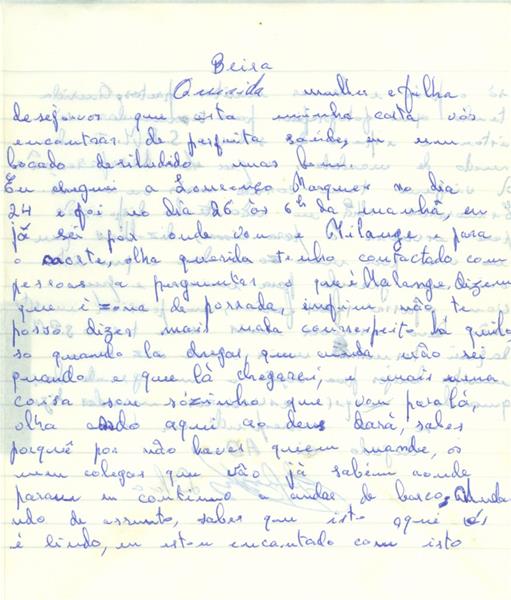 Beira
Querida mulher e filha
desejo-vos que esta minha carta vos
encontrar de perfeita saúde, eu um
bocado desiludido mas bem.
Eu cheguei a Lourenço Marques no dia
24 e foi no dia 26 às 6h da manhã, eu
já sei por onde vou e Milange e para
o norte, olha querida tenho contactado com
pessoas a perguntar o que é Malange, dizem
que é zona de porrada, enfim não te
posso dizer mais nada com respeito há quilo
so quando la chegar, que ainda não sei
quando e que lá chegarei, e mais uma
coisa sou sózinho que vou para lá,
olha ando aqui ao deus dará, sabes
porquê por não haver quem mande, os
meus colegas que vão já sabem aonde
param eu continuo a andar de barco, Muda
ndo de assunto, saber que isto aqui
é lindo, eu estou encantado com isto